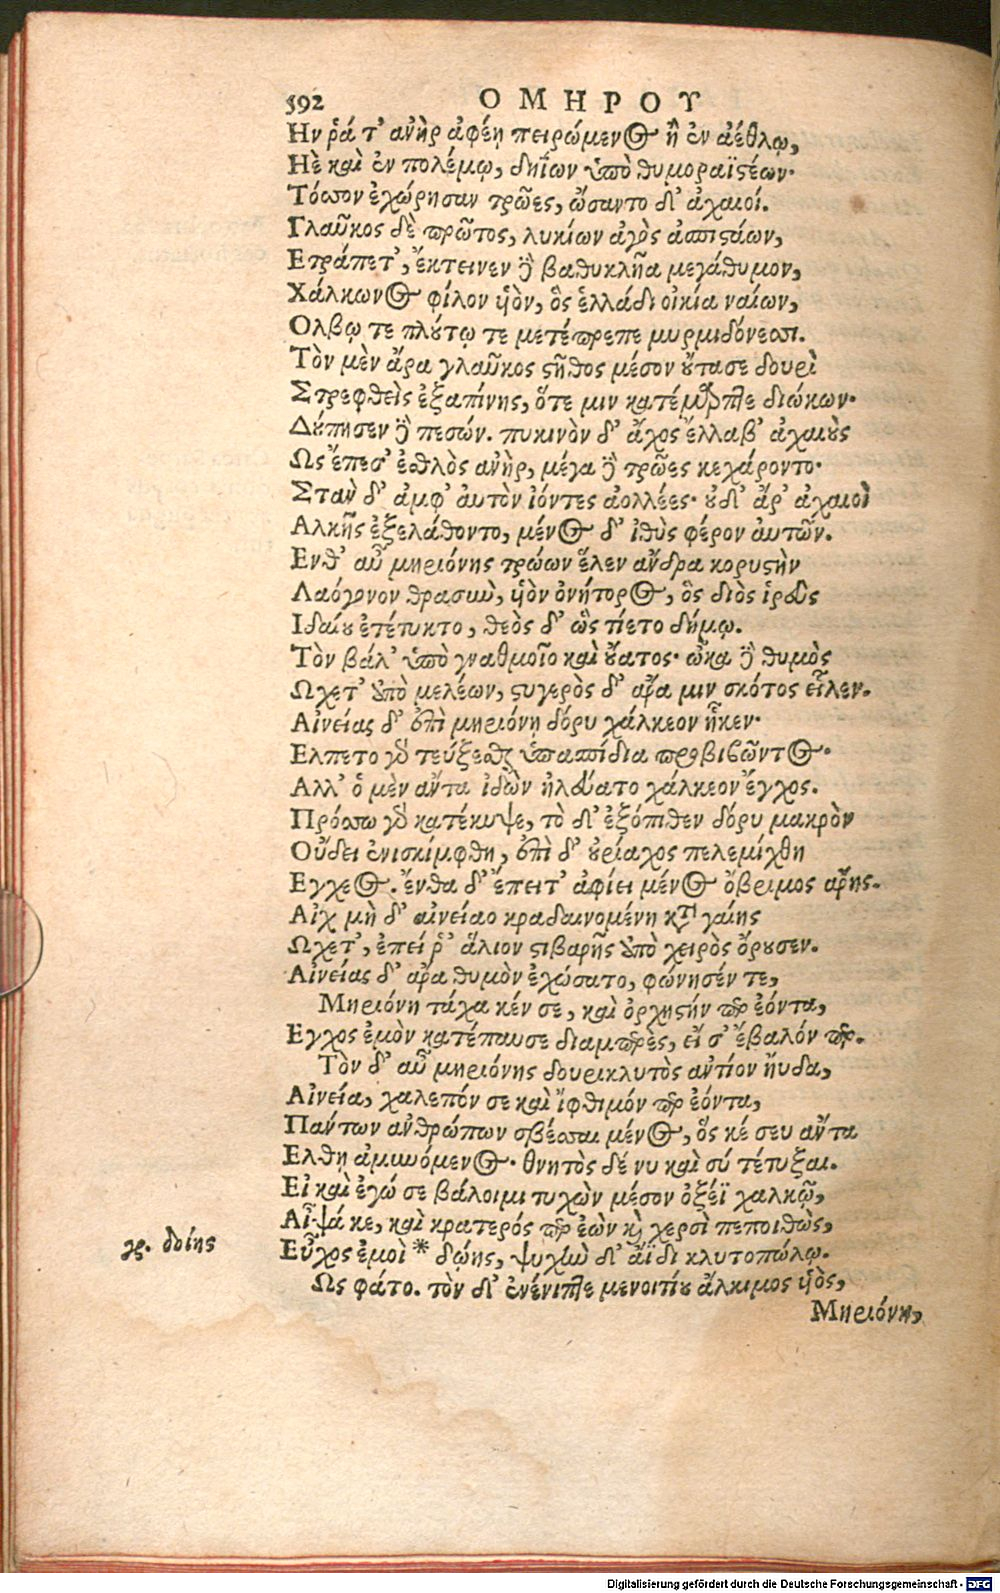 592 ΟΜΗΡΟΥ
Ην ῥά τ' ἀνὴρ ἀφέῃ πειρώμενος ἢ ἐν ἀέθλῳ,
Ηὲ καὶ ἐν πολέμῳ, δηΐων ὑπὸ θυμοραϊστέων·
Τόσσον ἐχώρησαν τρῶες, ὤσαντο δ' ἀχαιοί.
Γλαῦκος δὲ πρῶτος, λυκίων ἀγὸς ἀσπιστάων,
Ετράπετ', ἔκτεινεν δὲ βαθυκλῆα μεγάθυμον,
Χάλκωνος φίλον υἱὸν, ὃς ἑλλάδι οἰκία ναίων,
Ολβῳ τε πλούτῳ τε μετέπρεπε μυρμιδόνεσσι.
Τὸν μὲν ἄρα γλαῦκος στῆθος μέσον οὔτασε δουρὶ
Στρεφθεὶς ἐξαπίνης, ὅτε μιν κατέμαρπτε διώκων·
Δούπησεν δὲ πεσών. πυκινὸν δ' ἄχος ἔλλαβ' ἀχαιοὺς
Ως ἔπεσ' ἐσθλὸς ἀνὴρ, μέγα δὲ τρῶες κεχάροντο·
Σταὺ δ' ἀμφ' αὐτὸν ἰόντες ἀολλέες· οὐδ' ἄρ' ἀχαιοὶ
Αλκῆς ἐξελάθοντο, μένος δ' ἰθὺς φέρον αὐτῶν.
Ενθ' αὖ μηριόνης τρώων ἕλεν ἄνδρα κορυστὴν
Λαόγονον θρασὺν, υἱὸν ὀνήτορος, ὃς διὸς ἱρεὺς
Ιδαίου ἐτέτυκτο, θεὸς δ' ὣς τίετο δήμῳ.
Τὸν βάλ' ὑπὸ γναθμοῖο καὶ οὔατος· ὦκα δὲ θυμὸς
Ωχετ' ἀπὸ μελέων, στυγερὸς δ' ἄρα μιν σκότος εἷλεν.
Αἰνείας δ' ἐπὶ μηριόνῃ δόρυ χάλκεον ἧκεν·
Ελπετο γὰρ τεύξεσθαι ὑπασπίδια προβιβῶντος·
Αλλ' ὁ μὲν ἄντα ἰδὼν ἠλεύατο χάλκεον ἔγχος.
Πρόσσω γὰρ κατέκυψε, τὸ δ' ἐξόπιθεν δόρυ μακρὸν
Οὔδει ἐνισκίμφθη, ἐπὶ δ' οὐρίαχος πελεμίχθη
Εγχεος. ἔνθα δ' ἔπειτ' ἀφίει μένος ὄβριμος ἄρης.
Αἰχμὴ δ' αἰνείαο κραδαινομένη κατὰ γαίης
Ωχετ', ἐπεί ῥ' ἅλιον στιβαρῆς ἀπὸ χειρὸς ὄρουσεν.
Αἰνείας δ' ἄρα θυμὸν ἐχώσατο, φώνησέν τε,
Μηριόνη τάχα κέν σε, καὶ ὀρχηστήν περ ἐόντα,
Εγχος ἐμὸν κατέπαυσε διαμπερὲς, εἴ σ' ἔβαλόν περ.
Τὸν δ' αὖ μηριόνης δουρικλυτὸς ἀντίον ἤυδα,
Αἰνεία, χαλεπόν σε καὶ ἴφθιμόν περ ἐόντα,
Πάντων ἀνθρώπων σβέσσαι μένος, ὅς κέ σευ ἄντα
Ελθῃ ἀμυνόμενος· θνητὸς δέ νυ καὶ σύ τέτυξαι.
Εἰ καὶ ἐγώ σε βάλοιμι τυχὼν μέσον ὀξέϊ χαλκῷ,
Αἶψά κε, καὶ κρατερός περ ἐὼν καὶ χερσὶ πεποιθὼς,
γρ. δοίης
Εὖχος ἐμοὶ * δώῃς, ψυχὴν δ' ἄϊδι κλυτοπώλῳ.
Ως φάτο. τὸν δ' ἐνένιπτε μενοιτίου ἄλκιμος υἱὸς,
Μηριόνη,
Digitalisierung gefördert durch die Deutsche Forschungsgemeinschaft - DFG